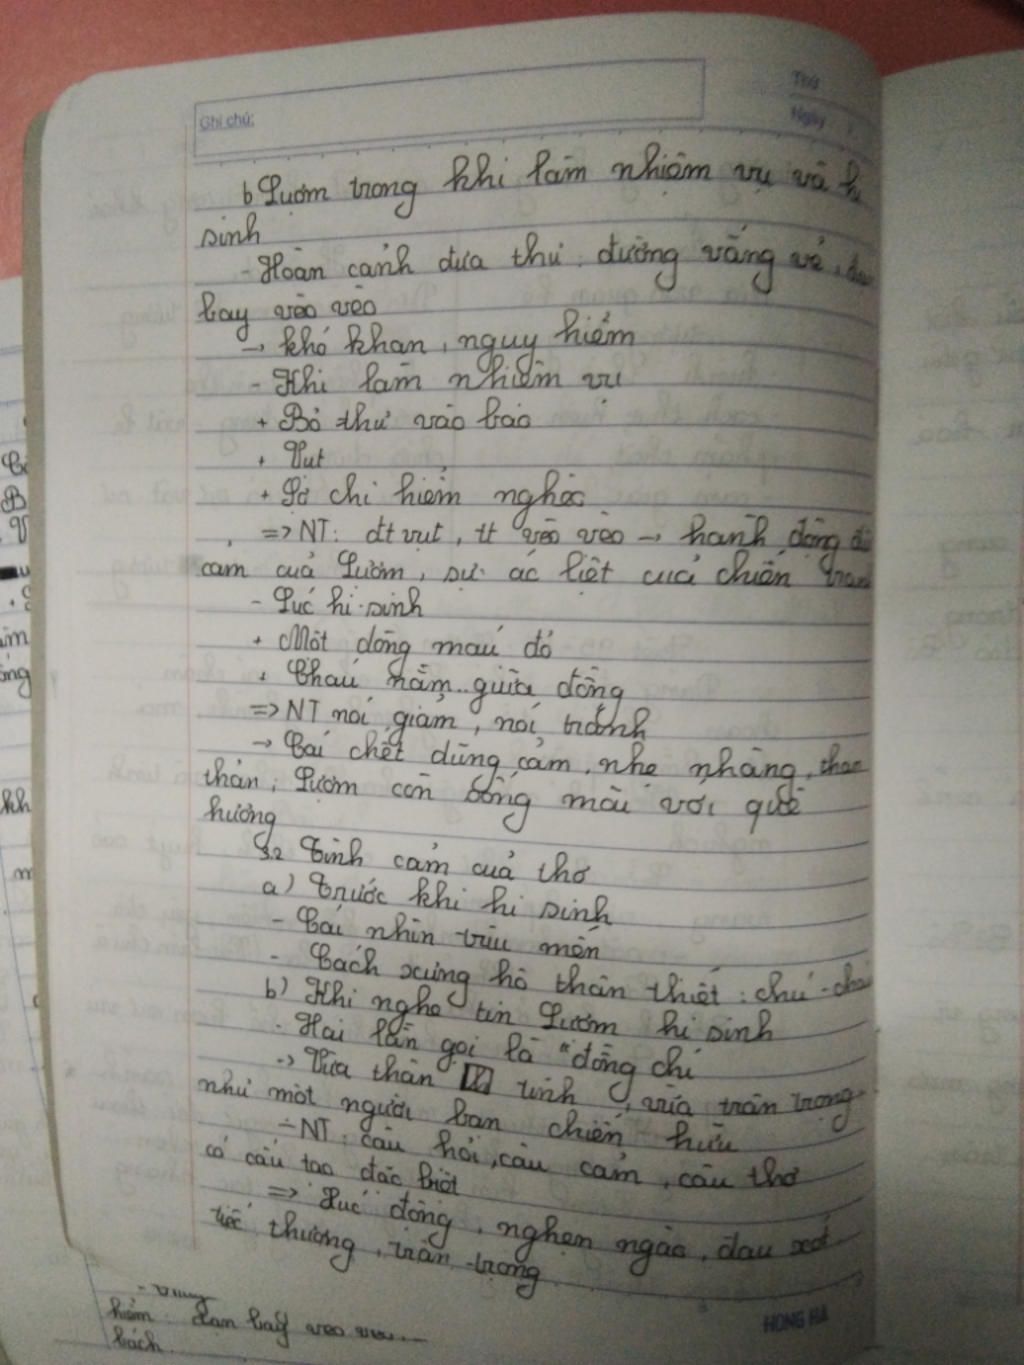 Thứ
Ghi chú:
Ngày
b Lượm trong khi làm nhiệm vụ và hi
sinh
- Hoàn cảnh đưa thư: đường vắng vẻ, đạn
bay vèo vèo
→ khó khan, nguy hiểm
- Khi làm nhiệm vụ
+ Bỏ thư vào bao
+ Vụt
+ Sợ chi hiểm nghèo
=> NT: đt vụt, tt vèo vèo → hành động dũ
cảm của Lượm, sự ác liệt của chiến tranh
- Lúc hi sinh
+ Một dòng máu đỏ
+ Cháu nằm.. giữa đồng
=> NT nói giảm, nói tránh
→ Cái chết dũng cảm, nhẹ nhàng, than
thản; Lượm còn sống mãi với quê
hương
3.2 Tình cảm của thơ
a) Trước khi hi sinh
- Cái nhìn trìu mến
- Cách xưng hô thân thiết: chú - cháu
b) Khi nghe tin Lượm hi sinh
- Hai lần gọi là "đồng chí
-> Vừa thân tình, vừa trân trọng
như một người bạn chiến hữu
- NT: câu hỏi, câu cảm, câu thơ
có cấu tạo đặc biệt
=> Xúc động, nghẹn ngào, đau xót
tiếc thương, trân trọng
hiểm: đạn bay vèo vèo...
bách.
HONG HA